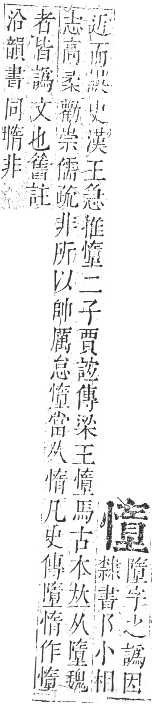 字之譌因
隸書阝小相
近而誤史漢王急推二子賈誼傳梁王馬古本𠀤从墮魏
志高柔勸崇儒疏非所以帥厲怠當从惰凡史傳墮惰作
者皆譌文也舊註
沿韻書同惰非